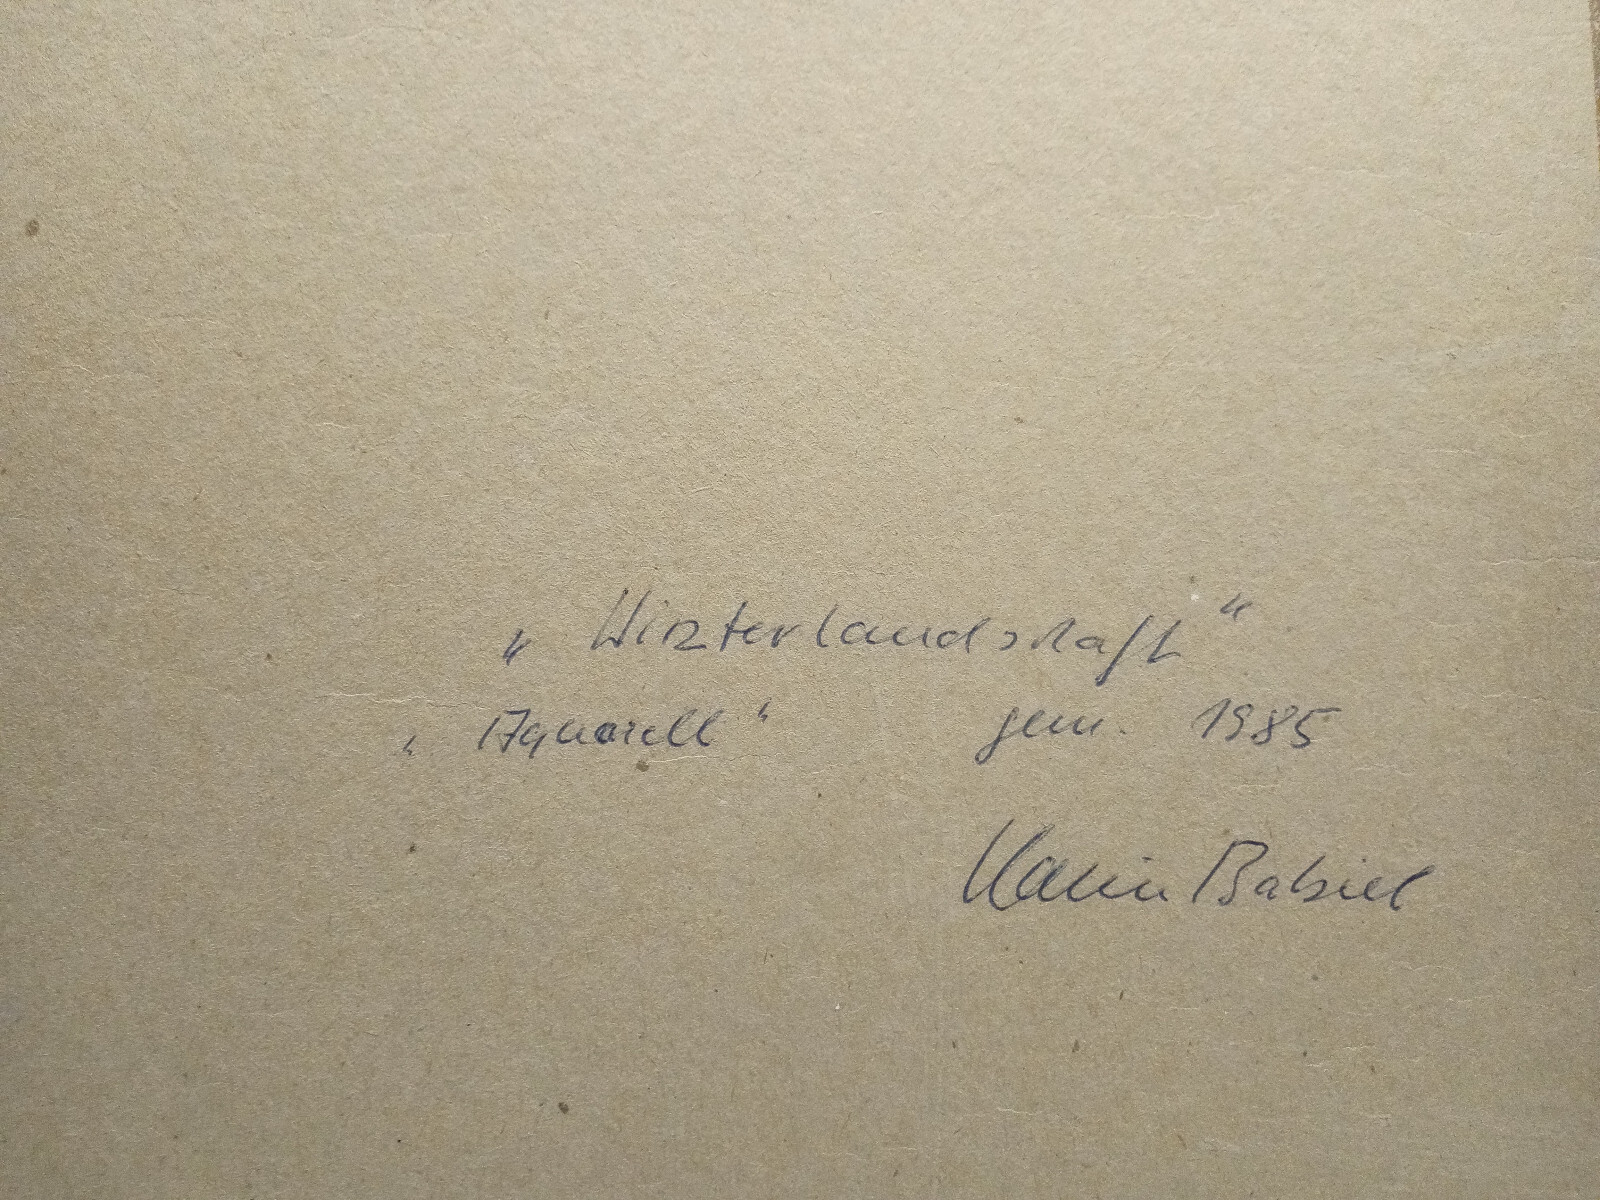 „ Winterlandschaft “
„ Aquarell “ gem. 1985
Karin